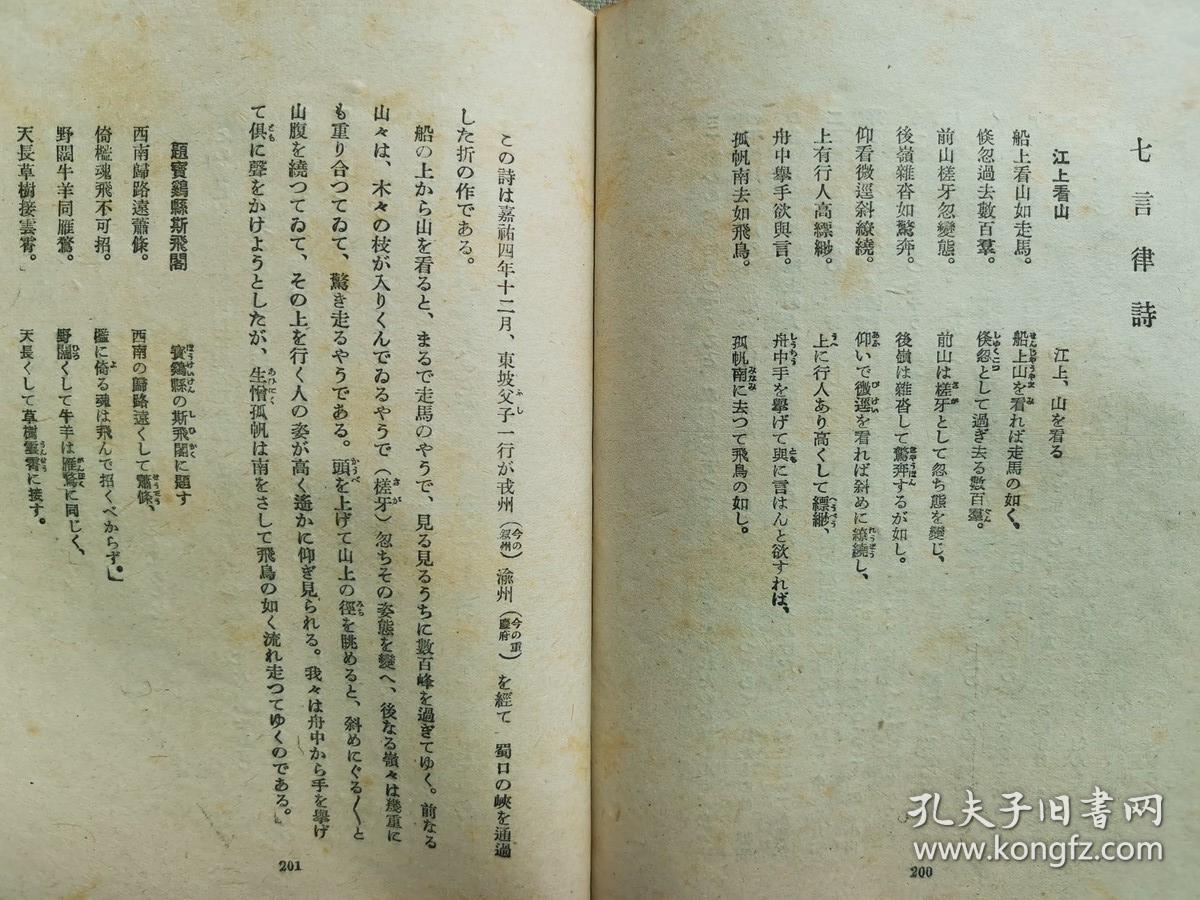 七言律詩
江上看山
江上、山を看る
船上看山如走馬。
船上山を看れば走馬の如く、
倐忽過去數百羣。
倐忽として過ぎ去る數百羣。
前山槎牙忽變態。
前山は槎牙として忽ち態を變じ、
後嶺雜沓如驚奔。
後嶺は雜沓して驚奔するが如し。
仰看微逕斜繚繞。
仰いで微逕を看れば斜めに繚繞し、
上有行人高縹緲。
上に行人あり高くして縹緲、
舟中擧手欲與言。
舟中手を擧げて與に言はんと欲すれば、
孤帆南去如飛鳥。
孤帆南に去つて飛鳥の如し。
200
この詩は嘉祐四年十二月、東坡父子一行が戎州(今の叙州)渝州(今の重慶府)を經て 蜀口の峽を通過
した折の作である。
船の上から山を看ると、まるで走馬のやうで、見る見るうちに數百峰を過ぎてゆく。前なる
山々は、木々の枝が入りくんでゐるやうで(槎牙)忽ちその姿態を變へ、後なる嶺々は幾重に
も重り合つてゐて、驚き走るやうである。頭を上げて山上の徑を眺めると、斜めにぐる〱と
山腹を繞つてゐて、その上を行く人の姿が高く遙かに仰ぎ見られる。我々は舟中から手を擧げ
て俱に聲をかけようとしたが、生憎孤帆は南をさして飛鳥の如く流れ走つてゆくのである。
題寶鷄縣斯飛閣
寶鷄縣の斯飛閣に題す
西南歸路遠蕭條。
西南の歸路遠くして蕭條、
倚檻魂飛不可招。
檻に倚る魂は飛んで招くべからず。
野闊牛羊同雁鶩。
野闊くして牛羊は雁鶩に同じく、
天長草樹接雲霄。
天長くして草樹雲霄に接す。
201
孔夫子旧书网
www.kongfz.com